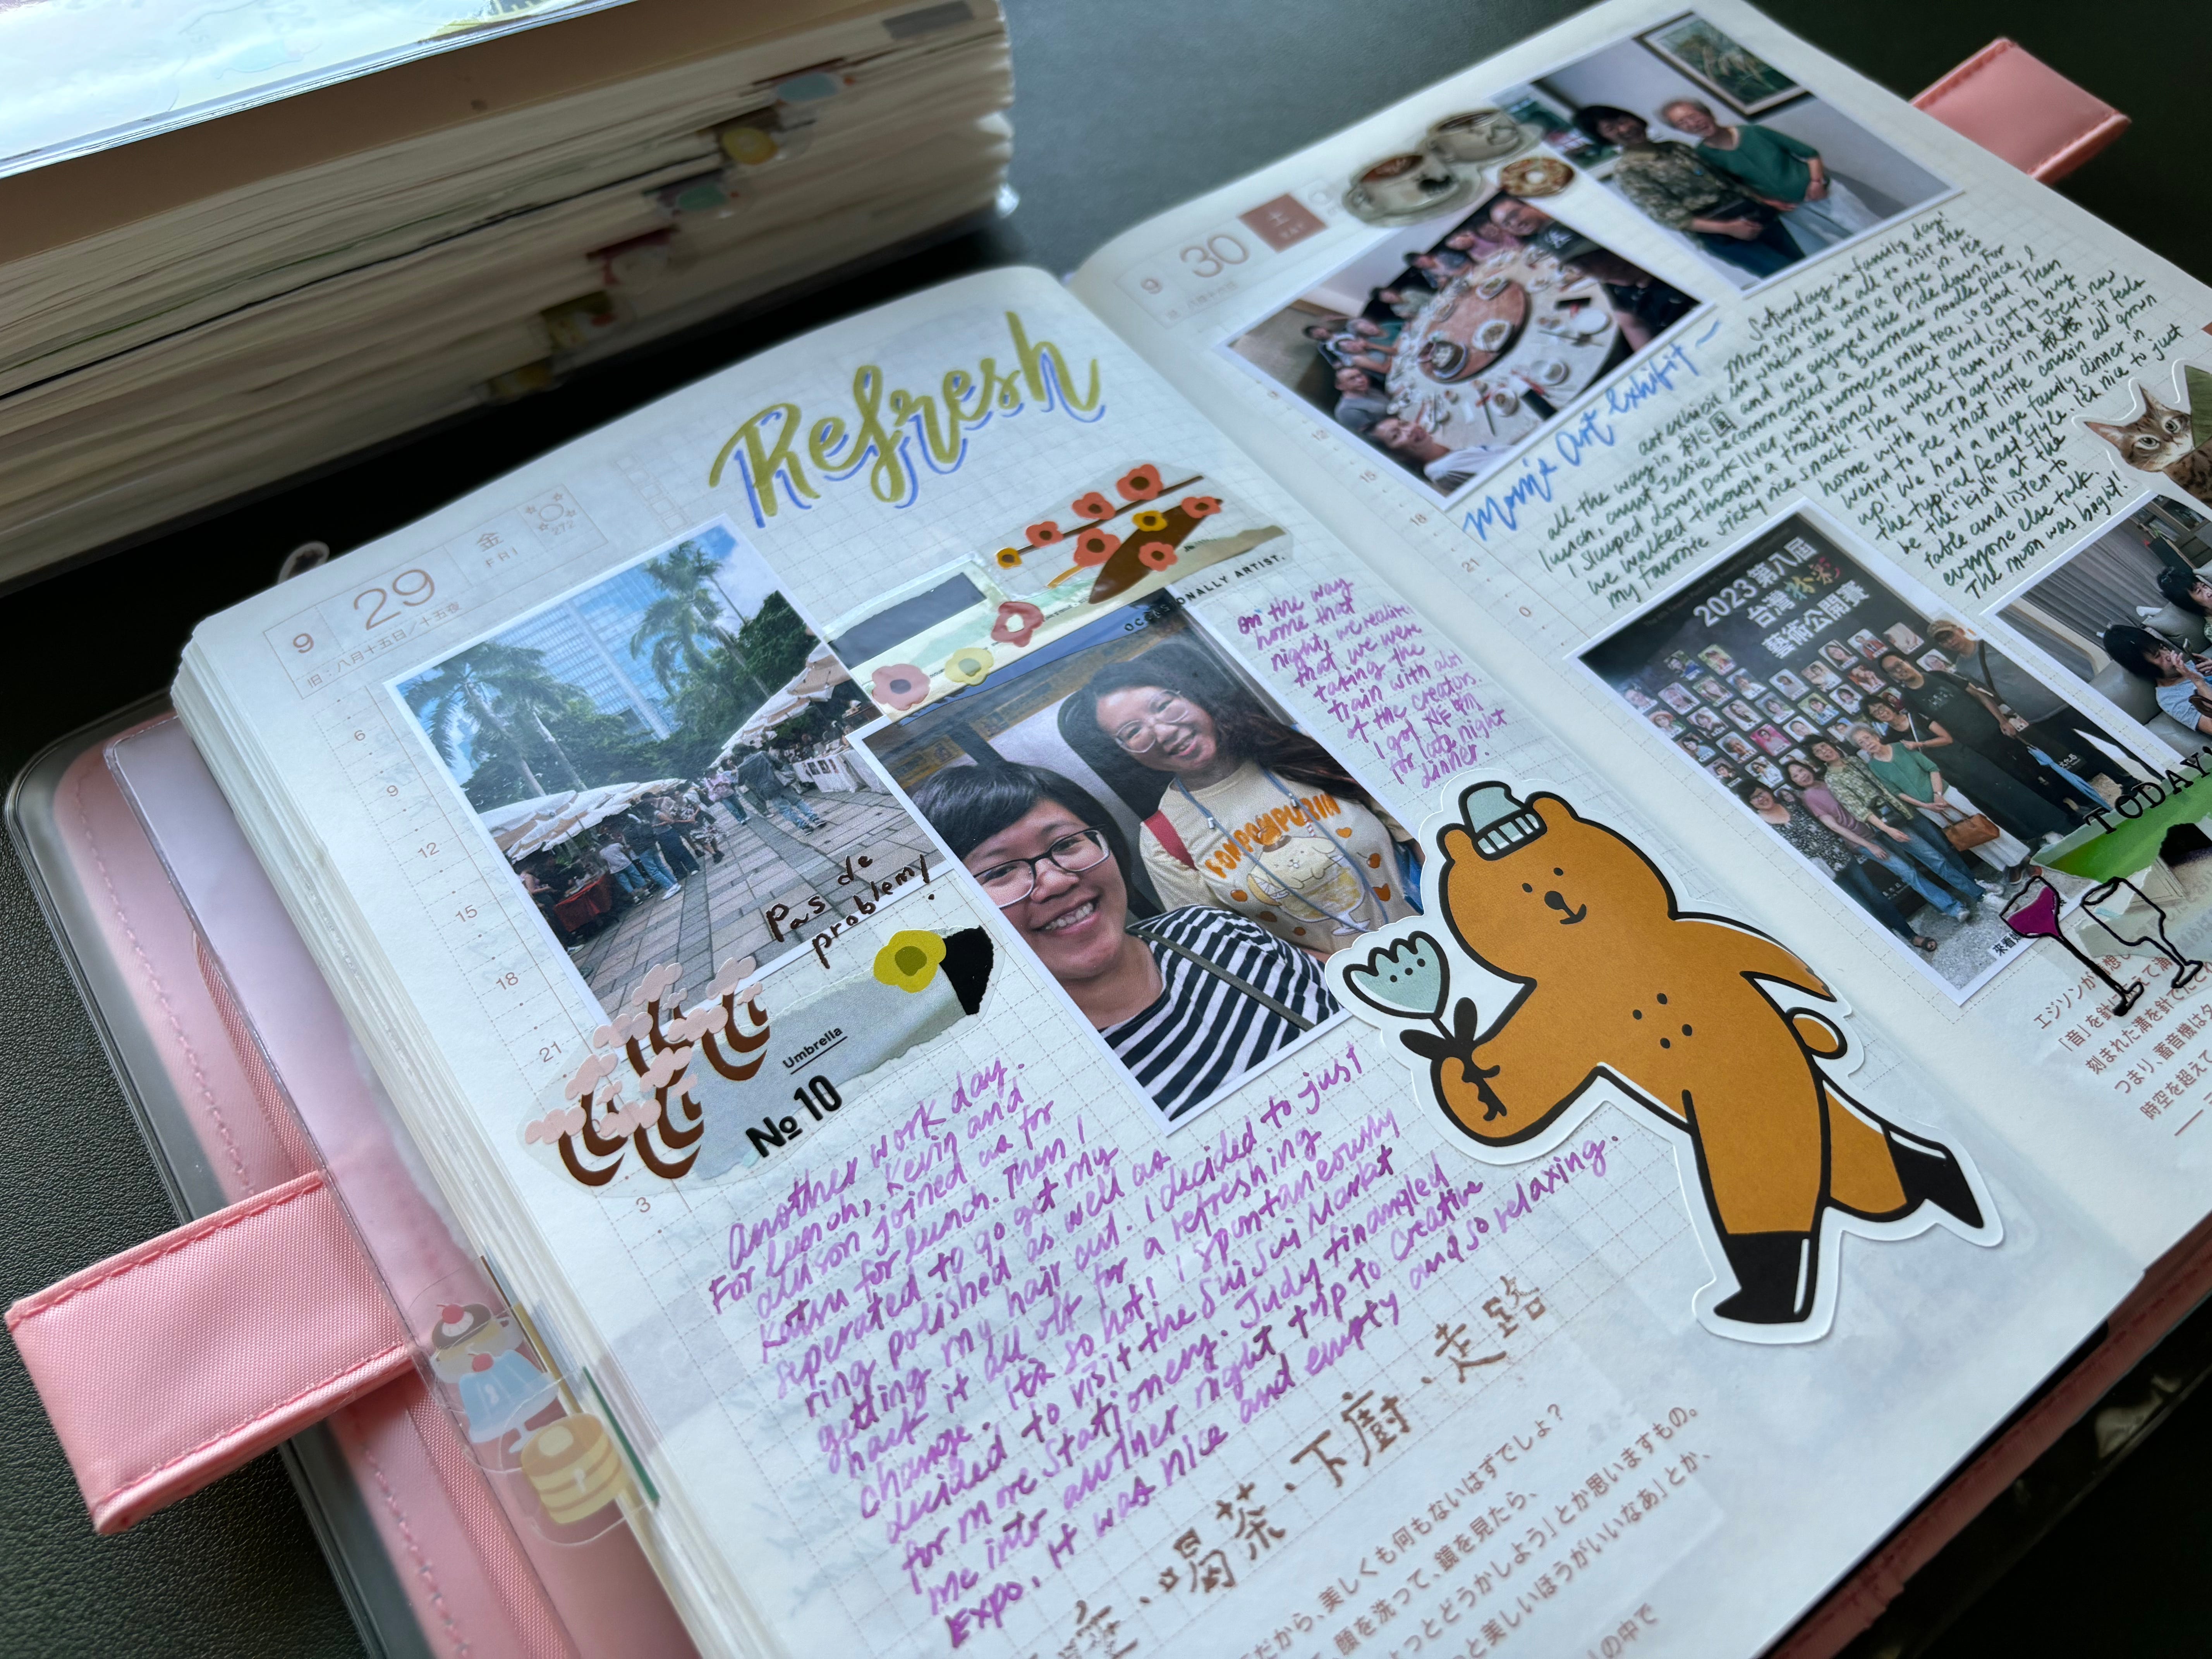 9
29
金
FRI
272
旧:八月十五日/十五夜
Refresh
OCCASIONALLY ARTIST.
6
9
12
15
18
21
3
Pas de
problemy.
Umbrella
№ 10
POMPOMPURIN
on the way
home that
night, we realize
that we were
taking the
train with alot
of the creators.
I got
for late night
dinner.
Another work day.
For lunch, Kevin and
Allison joined us for
Katsu for lunch. Then I
seperated to go get my
ring polished as well as
getting my hair cut. I decided to just
hack it all off for a refreshing
change. It's so hot! I spontaneously
decided to visit the Sui Sui Market
for more stationery. Judy finangled
me into another night trip to Creative
Expo. It was nice and empty and so relaxing.
、喝茶、下廚、走路
だから、美しくも何もないはずでしょ?
、顔を洗って、鏡を見たら、
ょっとどうかしよう」とか思いますもの。
と美しいほうがいいなあ」とか、
の中で
9
30
土
12
15
18
21
0
Mom's Art Exhibit~
Saturday is family day!
Mom invited us all to visit the
art exhibit in which she won a prize in. It's
all the way in 桃園 and we enjoyed the ride down. For
lunch, aunt Jessie recommended a burmese noodle place, I
slurped down pork liver with burmese milk tea, so good. Then
we walked through a traditional market and I got to buy
my favorite sticky rice snack. The whole fam visited Joey's new
home with her partner in it feels
weird to see that little cousin all grown
up! We had a huge family dinner in
the typical feast style. It's nice to just
be the "kid" at the
table and listen to
everyone else talk.
The moon was bright!
2023第八屆
台灣粉彩
藝術公開賽
TODAY'
エジソンが
「音」を針
刻まれた溝を針で
つまり、蓄音機は
時空を超えて